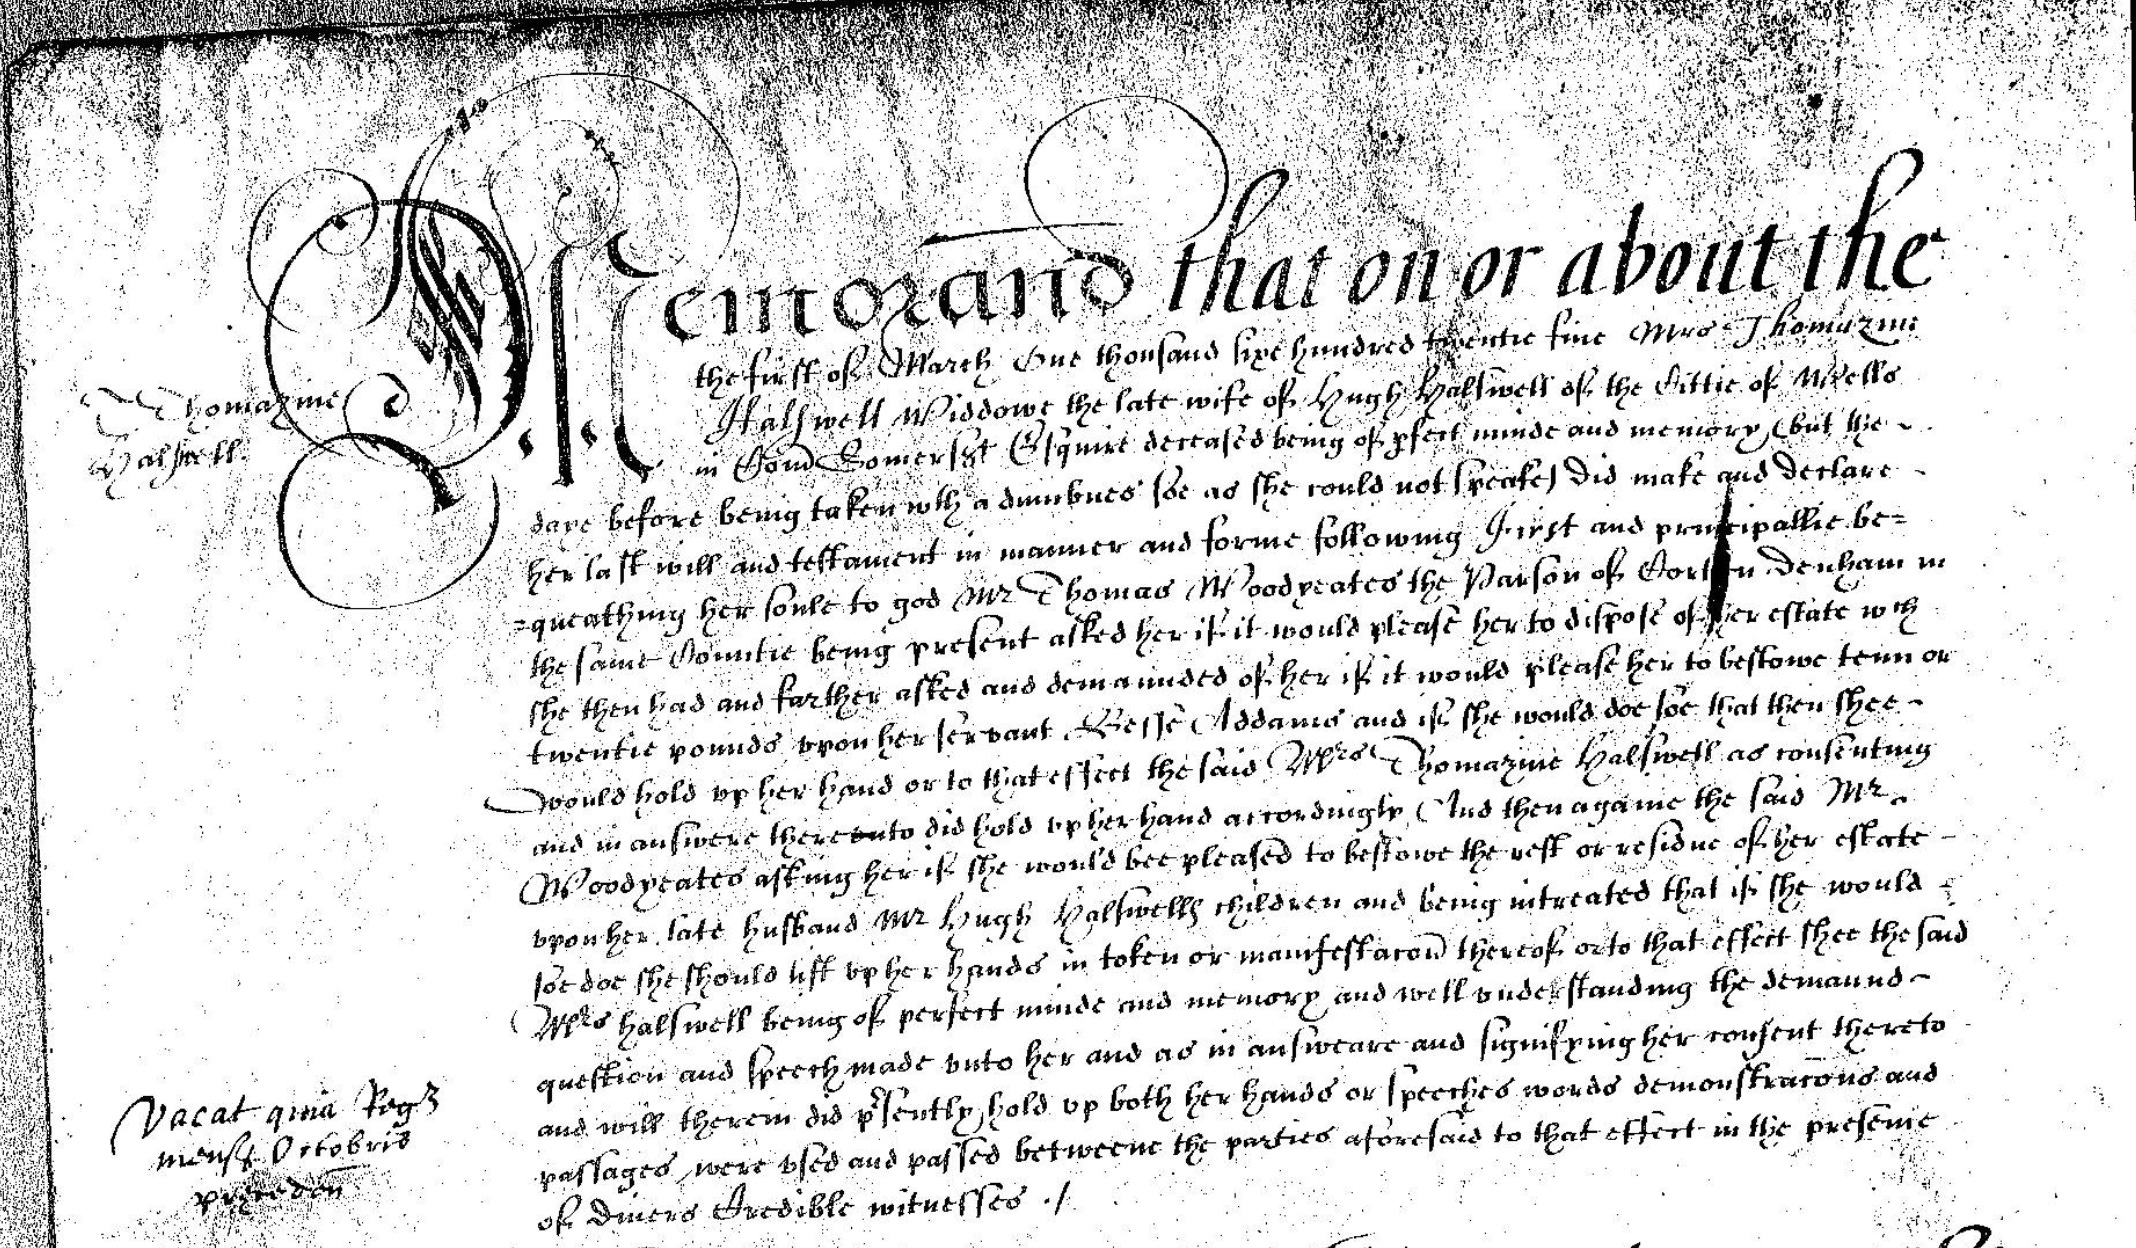 Memorand that on or about the
the first of March One thousand sixe hundred twentie five Mrs Thomazine
Thomazine
Halswell.
Halswell Widdowe the late wife of Hugh Halswell of the Cittie of Wells
in Com Somerset Esquire deceased being of pfect minde and memory (but the
daye before being taken wth a dumbnes soe as she could not speake) did make and declare
her last will and testament in manner and forme following First and principallie be=
=queathing her soule to god Mr Thomas Woodyeates the Parson of Corten denham in
the same Countie being present asked her if it would please her to dispose of her estate wch
she then had and farther asked and demaunded of her if it would please her to bestowe tenn or
twentie pounds vpon her servant Besse Addams and if she would doe soe that then shee
would hold vp her hand or to that effect the said Mrs Thomazine Halswell as consenting
and in answere thereunto did hold vp her hand accordingly And then againe the said Mr
Woodyeates asking her if she would bee pleased to bestowe the rest or residue of her estate
vpon her late husband Mr Hugh Halswells children and being intreated that if she would
soe doe she should lift vp her hands in token or manifestacon thereof or to that effect shee the said
Mrs halswell being of perfect minde and memory and well vnderstanding the demaund
question and speech made vnto her and as in answeare and signifying her consent thereto
and will therein did psently hold vp both her hands or speeches words demonstracons and
passages were vsed and passed betweene the parties aforesaid to that effect in the presence
of divers Credible witnesses ./
Vacat quia Reg
mens Octobris
preceden